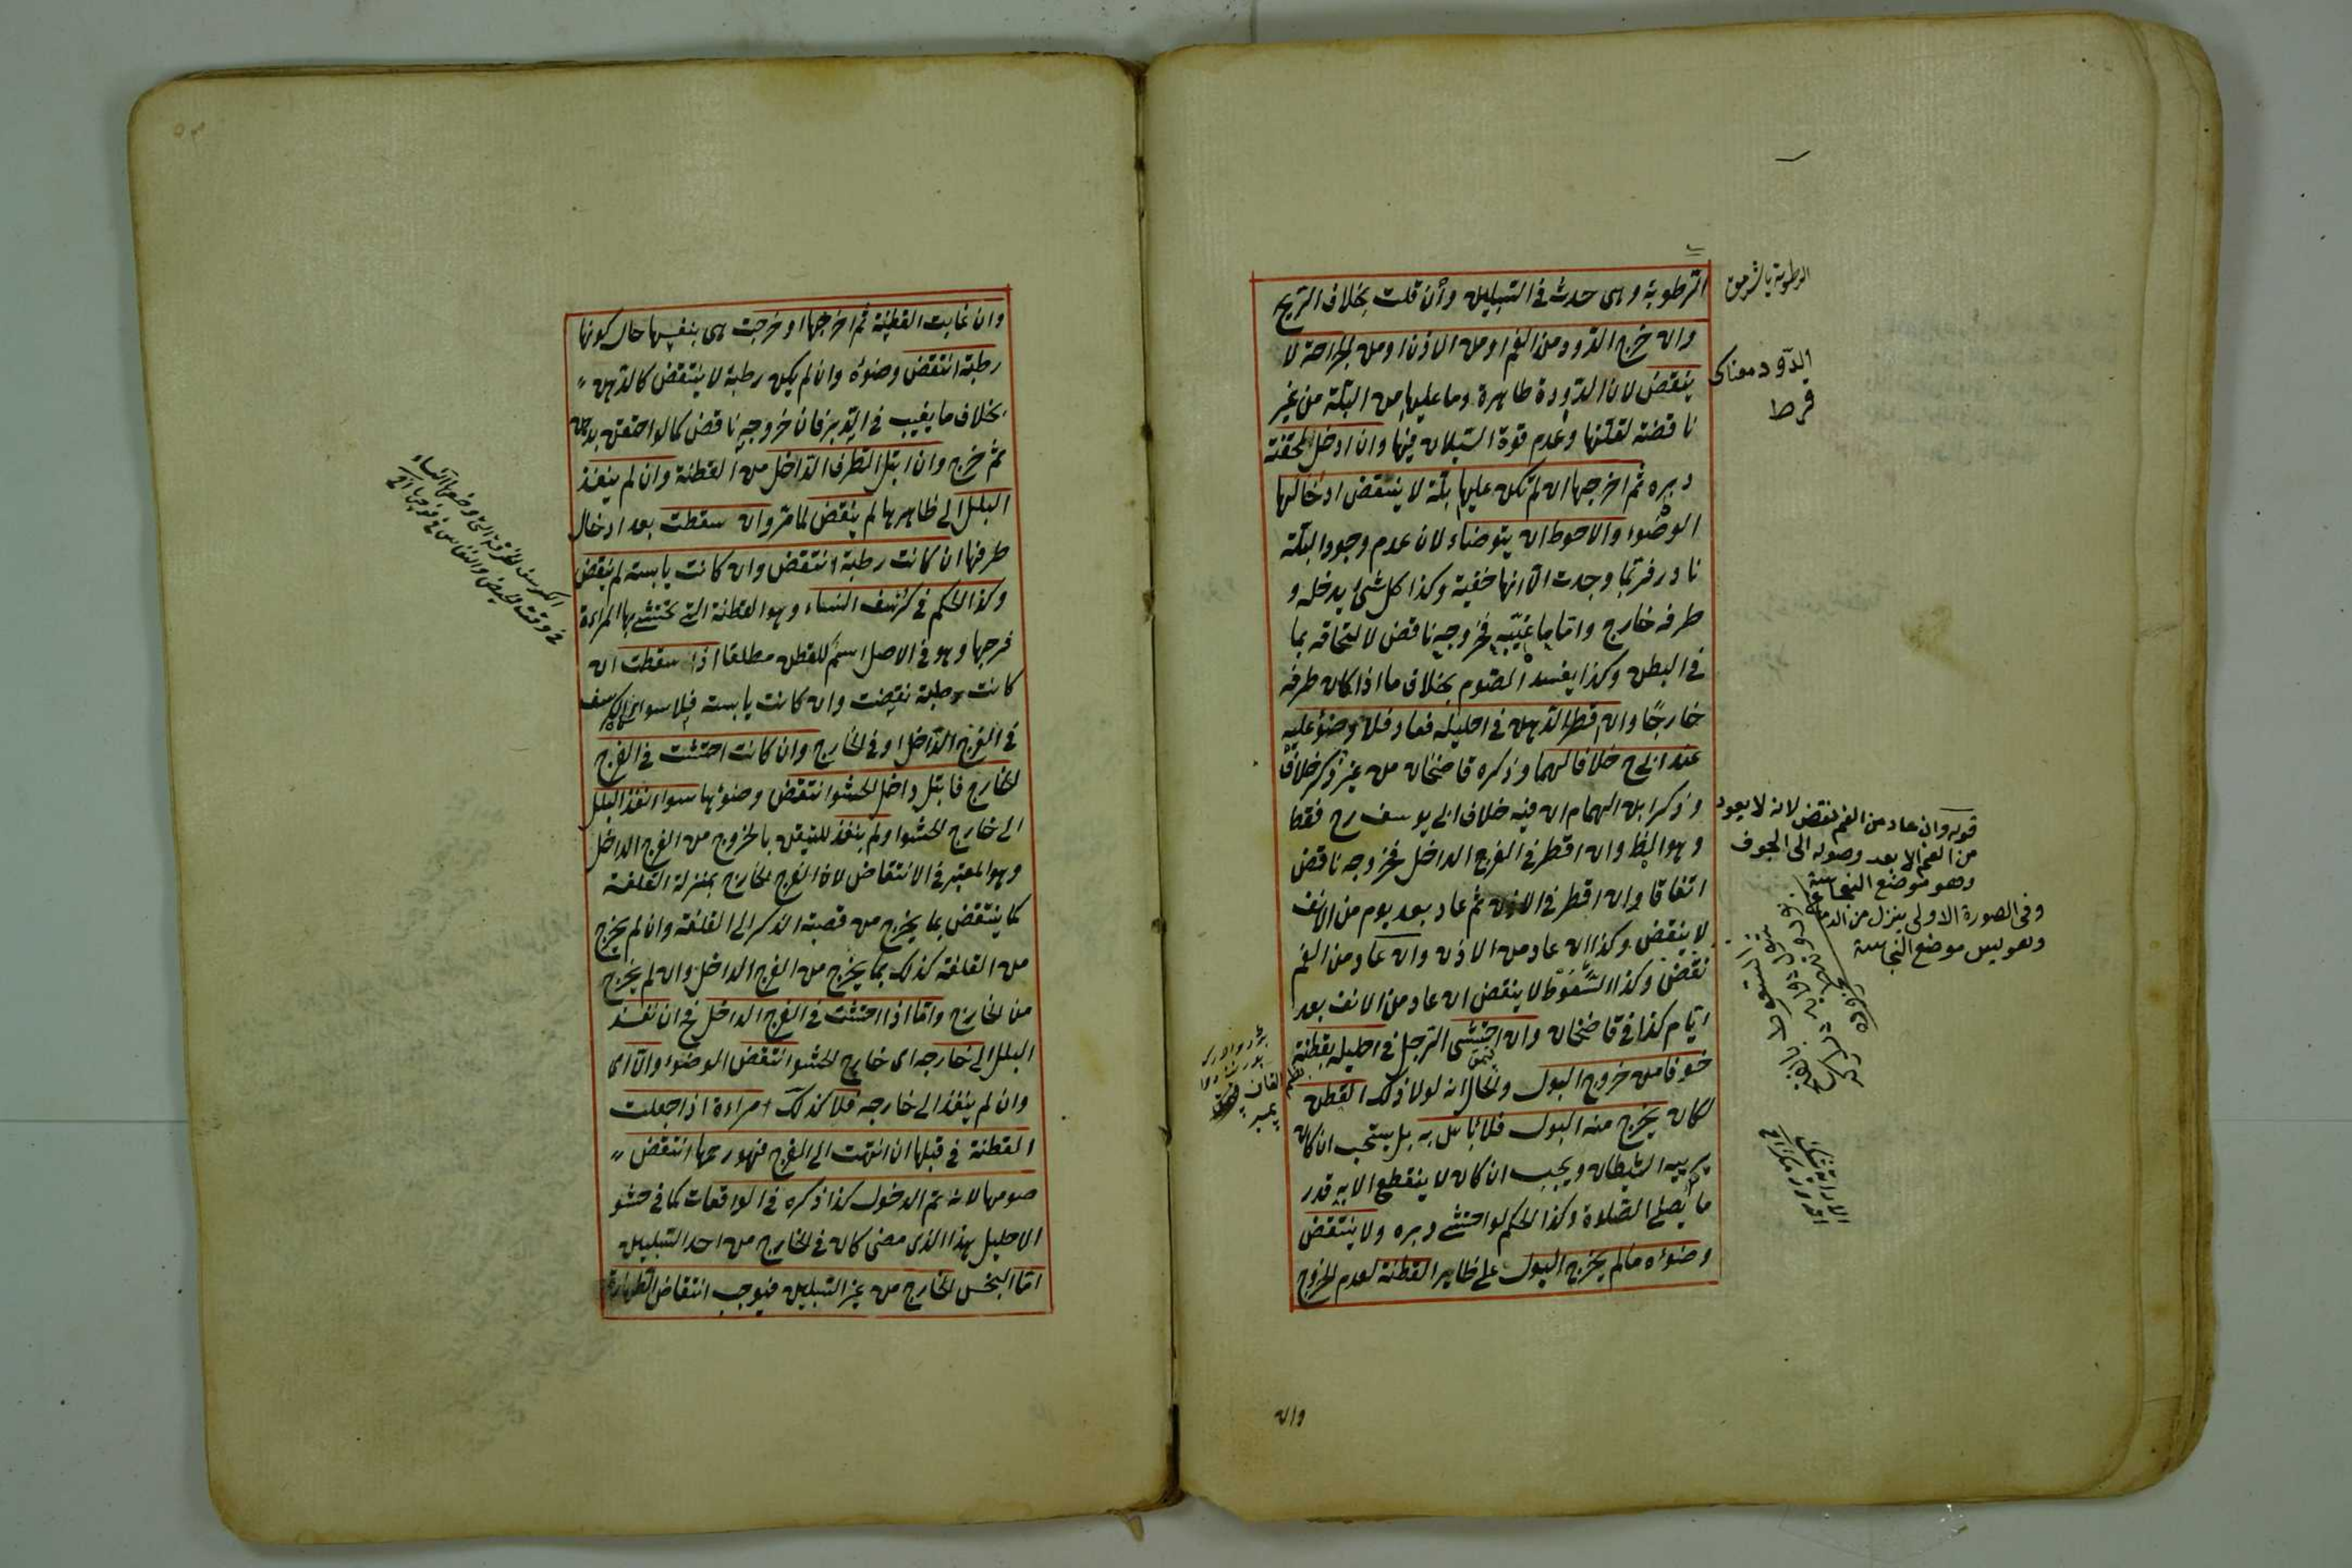 الرطوبة وهى حدث فى السبيلين وان قلت بخلاف الريح
وان خرج الدود من الفم او من الاذن او من الجراحة لا
ينقض لان الدودة طاهرة وما عليها من البلة من غير
ناقضة لقلتها وعدم قوة السيلان فيها وان ادخل المحقنة
دبره ثم اخرجها ان لم تكن عليها بلة لا ينتقض ادخالها
الوضوء والاحوط ان يتوضاء لان عدم وجود البلة
نادر فربما وجدت الا انها خفية وكذا كل شئ يدخله و
طرفه خارج واما ما غيبه فخروجه ناقض لالتحاقه بما
فى البطن وكذا يفسد الصوم بخلاف ما اذا كان طرفه
خارجا وان قطر الدهن فى احليله فعاد فلا وضوء عليه
عند ابى ح خلافا لهما وذكره قاضخان من غير ذكر خلاف
وذكر ابن الهمام ان فيه خلاف ابى يوسف رح فقط
وهو الظ وان اقطر فى الفرج الداخل فخروجه ناقض
اتفاقا وان اقطر فى الاذن ثم عاد بعد يوم من الانف
لا ينقض وكذا ان عاد من الاذن وان عاد من الفم
نقض وكذا السعوط لا ينقض ان عاد من الانف بعد
ايام كذا فى قاضخان وان احتشى الرجل فى احليله بقطنة
خوفا من خروج البول والحال انه لولا ذلك القطن
لكان يخرج منه البول فلا باس به بل يستحب ان كان
يريبه الشيطان ويجب ان كان لا ينقطع الا به قدر
ما يصلى الصلوة وكذا الحكم لو احتشى دبره ولا ينتقض
وضوءه مالم يخرج البول على ظاهر القطنة لعدم الخروج
وان
الرطوبة ياشرمق
الدود معناك
قرط
قوله وان عاد من الفم نقض لانه لا يعود
من الفم الا بعد وصوله الى الجوف
وهو موضع النجاسة
وفى الصورة الاولى ينزل من الدماغ
وهو ليس موضع النجاسة
وان غابت القطنة ثم اخرجها او خرجت هى بنفسها حال كونها
رطبة انتقض وضوءه وان لم يكن رطبة لا ينتقض كالدهن
بخلاف ما يغيب فى الدبر فان خروجه ناقض كما لو احتقن بدهن
ثم خرج وان ابتل الطرف الداخل من القطنة وان لم ينفذ
البلل الى ظاهرها لم ينقض لما مر وان سقطت بعد ادخال
طرفها ان كانت رطبة انتقض وان كانت يابسة لم ينقض
وكذا الحكم فى كرسف النساء وهو القطنة التى تحتشى بها المراءة
فرجها وهو فى الاصل اسم للقطن مطلقا اذا سقطت ان
كانت رطبة نقضت وان كانت يابسة فلا سواء كان الكرسف
فى الفرج الداخل او فى الخارج وان كانت احتشت فى الفرج
الخارج فابتل داخل الحشو انتقض وضوءها سواء نفذ البلل
الى خارج الحشو او لم ينفذ للتيقن بالخروج من الفرج الداخل
وهو المعتبر فى الانتقاض لان الفرج الخارج بمنزلة القلفة
كما ينتقض بما يخرج من قصبة الذكر الى القلفة وان لم يخرج
من القلفة كذلك بما يخرج من الفرج الداخل وان لم يخرج
من الخارج واما اذا احتشت فى الفرج الداخل فح ان نفذ
البلل الى خارجه اى خارج الحشو انتقض الوضوء والا اى
وان لم ينفذ الى خارجه فلا كذلك امراءة اذا جعلت
القطنة فى قبلها ان انتهت الى الفرج فهو رحمها انتقض
صومها لانه تم الدخول كذا ذكره فى الواقعات كما فى حشو
الاحليل هذا الذى مضى كان فى الخارج من احد السبيلين
اما النجس الخارج من غير السبيلين فيوجب انتقاض الطهارة
الكرسف الخرقة التى وضعها النساء
فى وقت الحيض والنفاس فى فرجها